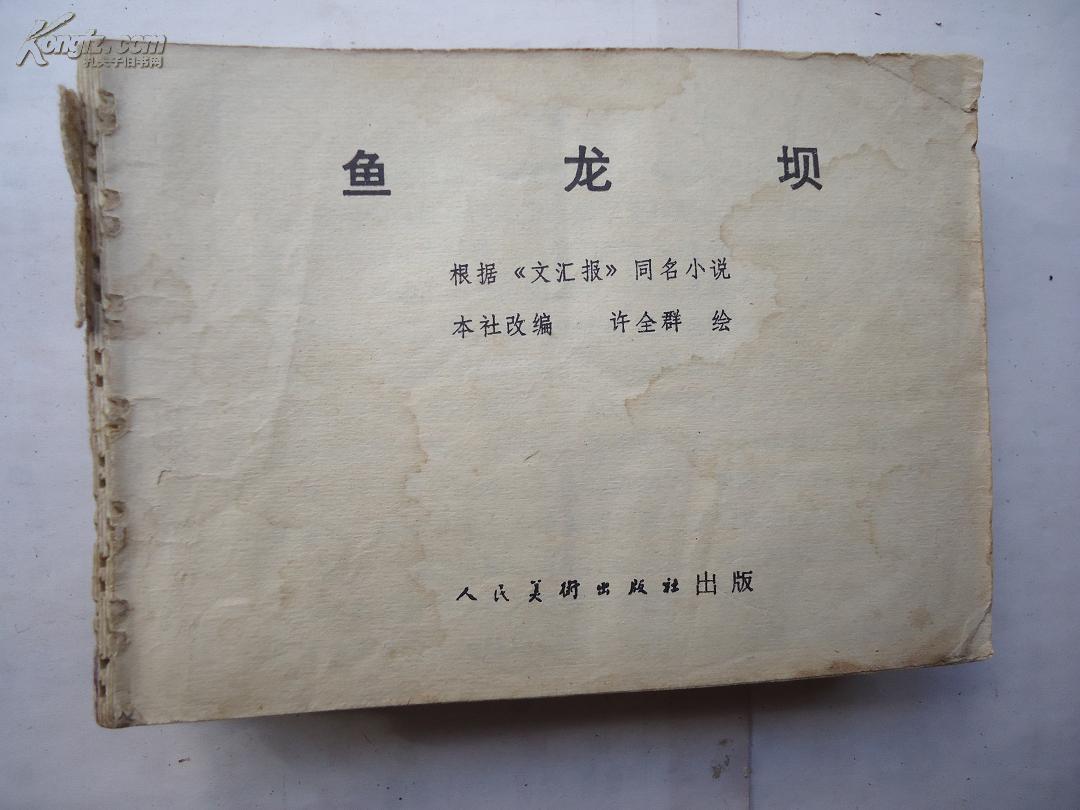 Kongfz.com
孔夫子旧书网
鱼龙坝
根据《文汇报》同名小说
本社改编 许全群 绘
人民美術出版社出版